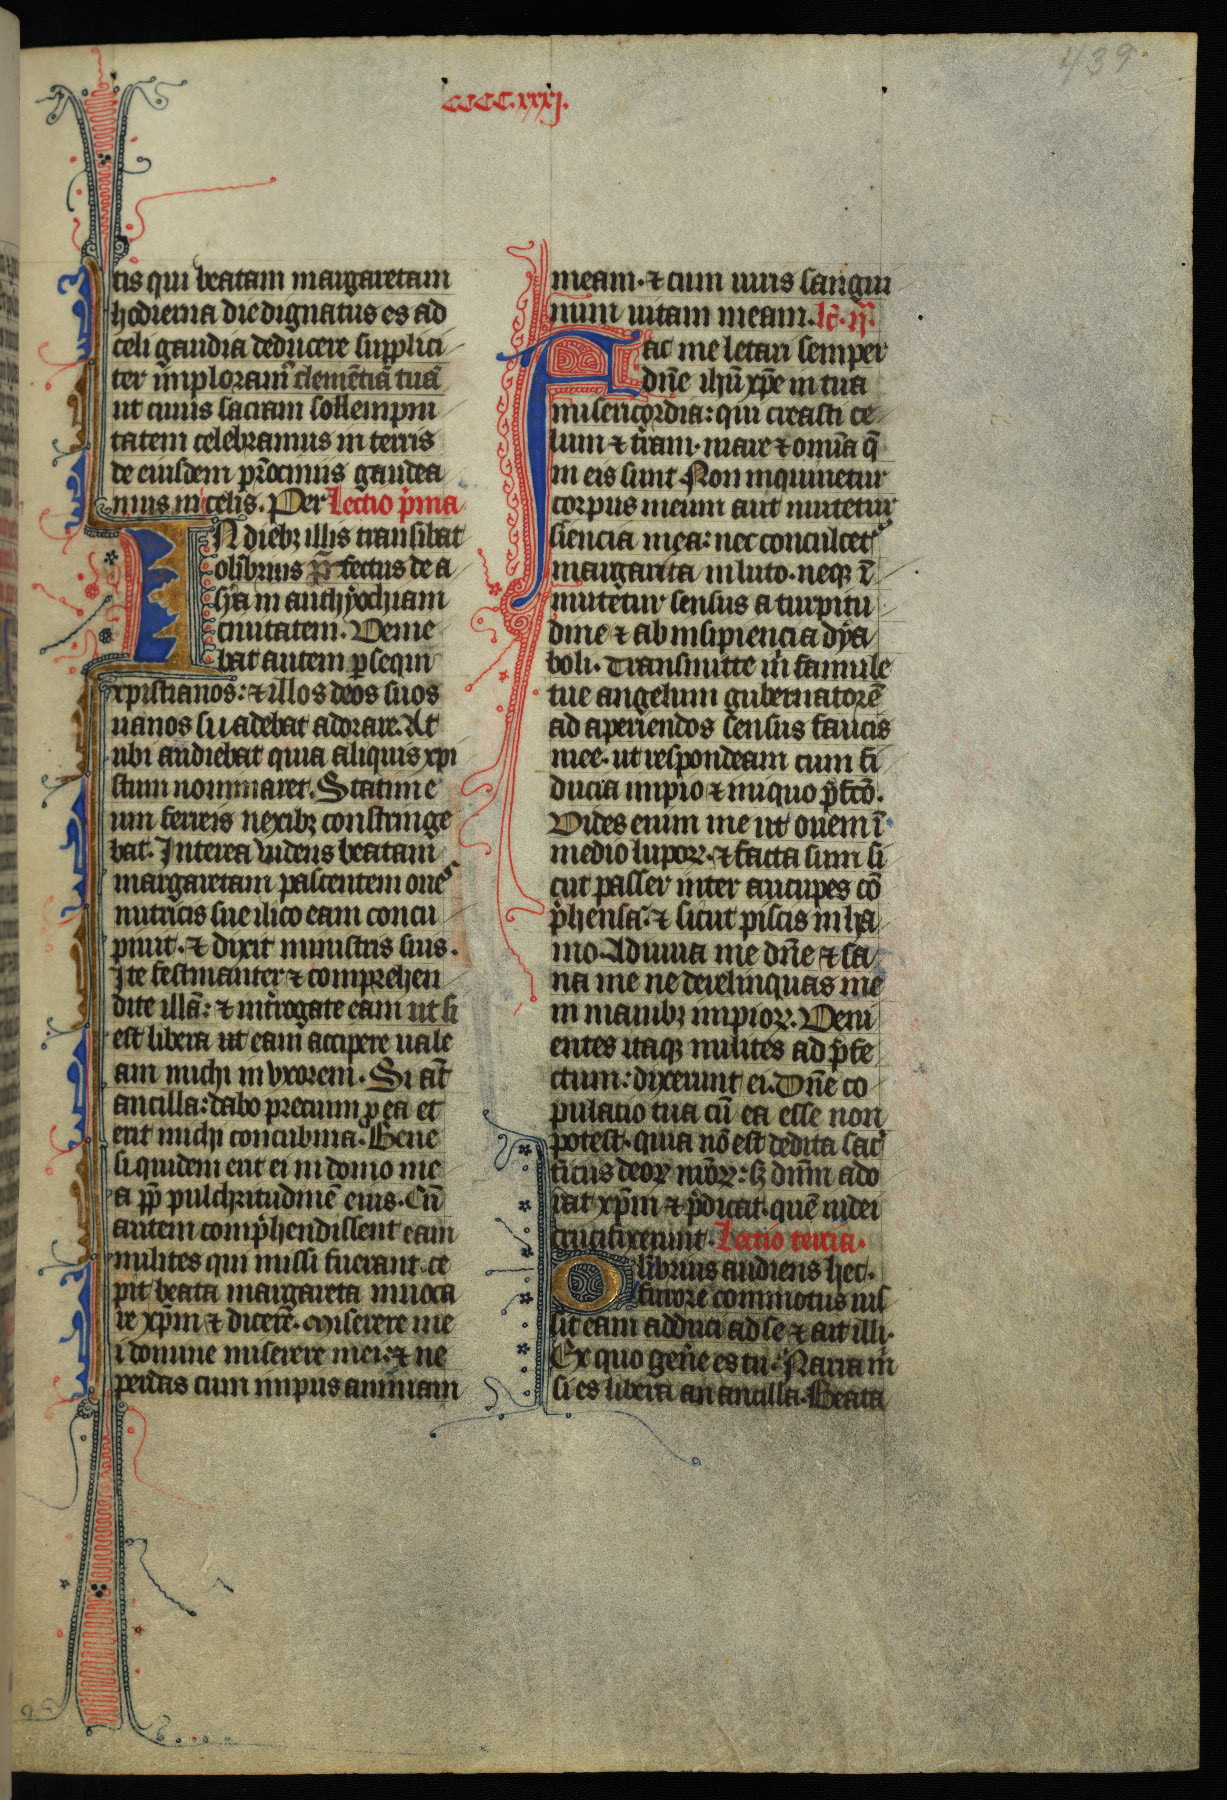 439
cccc.xxxj.
tis qui beatam margaretam
hodierna die dignatus es ad
celi gaudia deducere supplici
ter imploram᷒ clemētiā tuā
ut cuius sacram sollempni
tatem celebramus in terris
de eiusdem p̄ocinus gaudea
mus in celis. Per Lectio p̄ma
IN dieb3 illis transibat
olibrius p̄fectus de a
sya in anthyochiam
ciuitatem. Venie
bat autem ꝑsequi
xpistianos: ⁊ illos deos suos
uanos suadebat adorare. At
ubi audiebat quia aliquis xpi
stum nominaret. Statim e
um ferreis nexib3 constringe
bat. Interea uidens beatam
margaretam pascentem oues
nutricis sue ilico eam concu
piuit. ⁊ dixit ministris suis.
Ite festinanter ⁊ comprehen
dite illā: ⁊ int̄rogate eam ut si
est libera ut eam accipere uale
am michi in vxorem. Si aūt
ancilla: dabo precium ꝓ ea et
erit michi concubina. Bene
siquidem erit ei in domo me
a pp̄ pulchritudinē eius. Cū
autem comp̄hendissent eam
milites qui missi fuerant. ce
pit beata margareta inuoca
re xp̄m ⁊ dicere. Miserere me
i domine miserere mei: ⁊ ne
perdas cum impiis animam
meam. ⁊ cum uiris sangui
num uitam meam. lc̄. ij.
Fac me letari semper
dn̄e ihū xp̄e in tua
misericordia: qui creasti ce
lum ⁊ t̄ram. mare ⁊ omīa q̄
in eis sunt. Non inquinetur
corpus meum aut mutetur
siencia mea: nec conculcet᷒
margarita in luto. neq3 ī
mutetur sensus a turpitu
dine ⁊ ab insipiencia dya
boli. Transmitte m̄ famule
tue angelum gubernatorē
ad aperiendos sensus faucis
mee. ut respondeam cum fi
ducia impio ⁊ iniquo p̄fc̄o.
Vides enim me ut ouem ī
medio lupoꝝ. ⁊ facta sum si
cut passer inter aucupes cō
p̄hensa. ⁊ sicut piscis in ha
mo. Adiuua me dn̄e ⁊ sa
na me ne derelinquas me
in manib3 impioꝝ. Veni
entes itaq3 milites ad p̄fe
ctum: dixerunt ei. Dn̄e co
pulatio tua cū ea esse non
potest. quia nō est dedita sac̄
ficiis deoꝝ nr̄oꝝ: s3 dn̄m ado
rat xp̄m ⁊ p̄dicat. quē iudei
crucifixerunt. Lectio tercia.
Olibrius audiens hec.
furore commotus ius
sit eam adduci ad se ⁊ ait illi.
Ex quo gen̄e es tu. Narra m̄
si es libera an ancilla. Beata